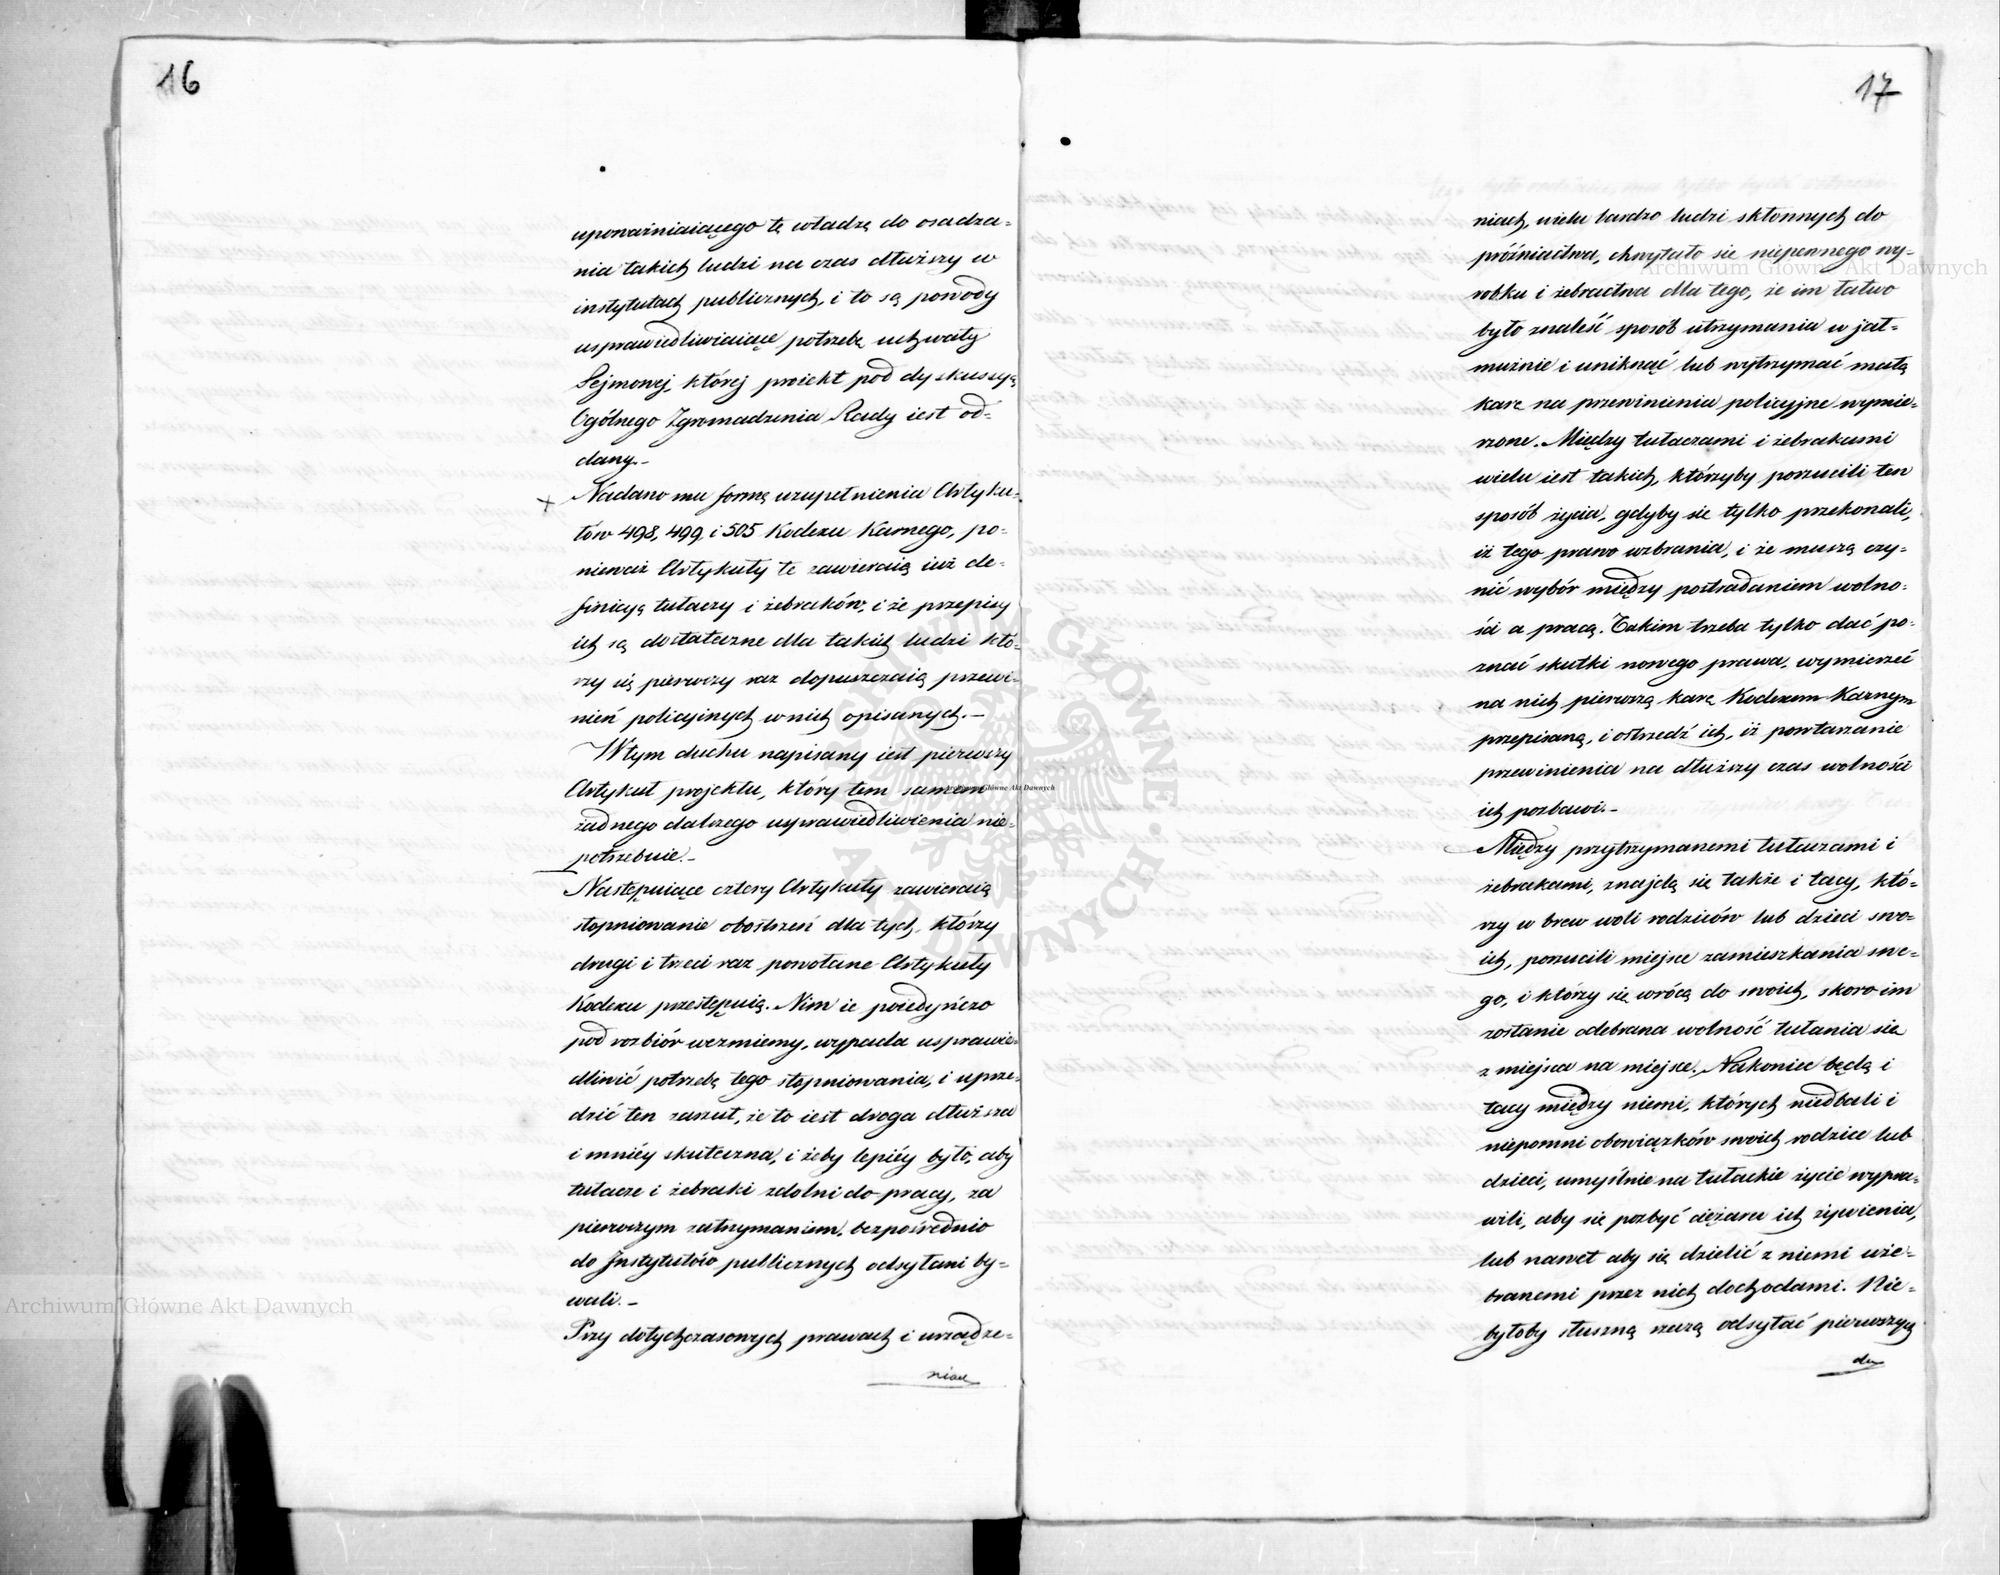 16
upoważniaiącego tę władzę do osadza=
nia takich ludzi na czas dłuższy w
instytutach publicznych, i to są powody
usprawiedliwiaiące potrzebę uchwały
Sejmowej, której proiekt pod dyskussyą
Ogólnego Zgromadzenia Rady iest od=
dany.-
+ Nadano mu formę uzupełnienia Artyku=
łów 498, 499 i 505 Kodexu Karnego, po=
nieważ Artykuły te zawieraią iuż de=
finicyą tułaczy i żebraków, i że przepisy
ich są dostateczne dla takich ludzi któ=
rzy się pierwszy raz dopuszczaią przewi=
nień policyinych w nich opisanych.-
W tym duchu napisany iest pierwszy
Artykuł projektu, który tem samem
żadnego dalszego usprawiedliwienia nie=
potrzebuie.-
Następuiące cztery Artykuły zawieraią
stopniowanie obostrzeń dla tych, którzy
drugi i trzeci raz powołane Artykuły
Kodexu przestępuią. Nim ie poiedyńczo
pod rozbiór weźmiemy, wypada usprawie=
dliwić potrzebę tego stopniowania, i uprze=
dzić ten zarzut, że to iest droga dłuższa
i mniéy skuteczna, i żeby lepiéy było, aby
tułacze i żebraki zdolni do pracy, za
pierwszym zatrzymaniem, bezpośrednio
do Instytutów publicznych odsyłani by=
wali.-
Przy dotychczasowych prawach i urządze=
niach
17
niach, wielu bardzo ludzi skłonnych do
próżniactwa, chwytało się niepewnego wy=
robku i żebractwa dla tego, że im łatwo
było znaleść sposób utrzymania w jał=
mużnie i uniknąć lub wytrzymać małą
karę na przewinienia policyjne wymie=
rzone. Między tułaczami i żebrakami
wielu iest takich, którzyby porzucili ten
sposób życia, gdyby się tylko przekonali,
iż tego prawo wzbrania, i że muszą czy=
nić wybór między postradaniem wolno=
ści a pracą. Takim trzeba tylko dać po=
znać skutki nowego prawa, wymierzeć
na nich pierwszą karę Kodexem Karnym
przepisaną, i ostrzedź ich, iż powtarzanie
przewinienia na dłuższy czas wolności
ich pozbawi.-
Między przytrzymanemi tułaczami i
żebrakami, znajdą się także i tacy, któ=
rzy w brew woli rodziców lub dzieci swo=
ich, porzucili miejsce zamieszkania swe=
go, i którzy się wrócą do swoich, skoro im
zostanie odebrana wolność tułania się
z miejsca na miejsce. Nakoniec będą i
tacy między niemi, których niedbali i
niepomni obowiązków swoich rodzice lub
dzieci, umyślnie na tułackie życie wypra=
wili, aby się pozbyć ciężaru ich żywienia,
lub nawet aby się dzielić z niemi uże=
branemi przez nich dochodami. Nie=
byłoby słuszną rzeczą odsyłać pierwszych
do
Archiwum Główne Akt Dawnych
Archiwum Główne Akt Dawnych
Archiwum Główne Akt Dawnych
ARCHIWUM GŁÓWNE AKT DAWNYCH